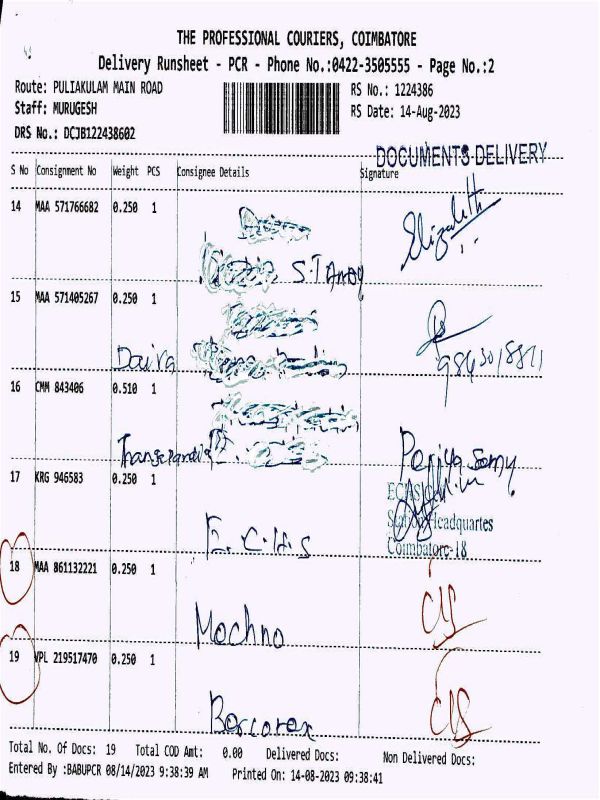 THE PROFESSIONAL COURIERS, COIMBATORE
Delivery Runsheet - PCR - Phone No.:0422-3505555 - Page No.:2
Route: PULIAKULAM MAIN ROAD
RS No.: 1224386
Staff: MURUGESH
RS Date: 14-Aug-2023
DRS No.: DCJB122438602
DOCUMENTS DELIVERY
S No Consignment No Weight PCS Consignee Details Signature
14 MAA 571766682 0.250 1
Elizabeth
S.T
15 MAA 571405267 0.250 1
16 CMM 843406 0.510 1
Periyasamy
17 KRG 946583 0.250 1
Station Headquartes
Coimbatore-18
E.C.H.S
18 MAA 861132221 0.250 1
Mochno
19 VPL 219517470 0.250 1
Total No. Of Docs: 19 Total COD Amt: 0.00 Delivered Docs: Non Delivered Docs:
Entered By :BABUPCR 08/14/2023 9:38:39 AM Printed On: 14-08-2023 09:38:41